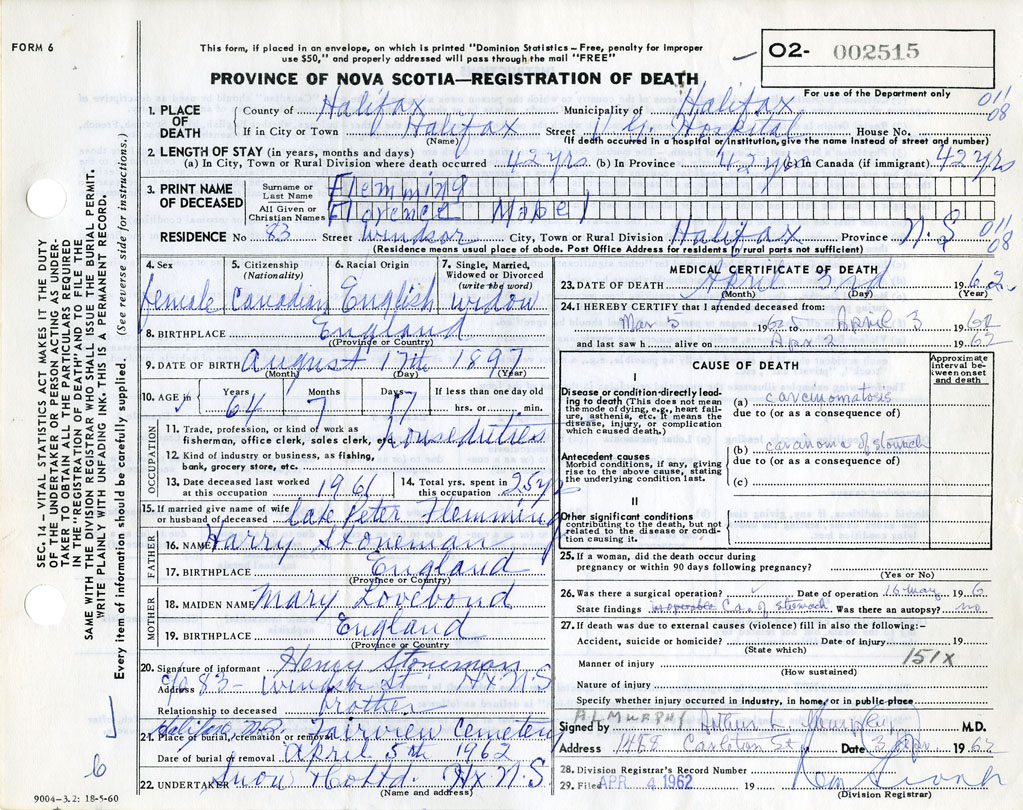 FORM 6
This form, if placed in an envelope, on which is printed "Dominion Statistics – Free, penalty for improper
use $50," and properly addressed will pass through the mail "FREE"
O2- 002515
For use of the Department only
PROVINCE OF NOVA SCOTIA—REGISTRATION OF DEATH
011
08
1. PLACE OF DEATH
County of Halifax Municipality of Halifax
If in City or Town Halifax Street Hospital House No.
(Name) (If death occurred in a hospital or institution, give the name instead of street and number)
2. LENGTH OF STAY (in years, months and days)
(a) In City, Town or Rural Division where death occurred 42 yrs. (b) In Province 42 yrs (c) In Canada (if immigrant) 42 yrs
3. PRINT NAME OF DECEASED
Surname or Last Name Flemming
All Given or Christian Names Florence Mabel
RESIDENCE No 83 Street Windsor City, Town or Rural Division Halifax Province N.S
(Residence means usual place of abode. Post Office Address for residents of rural parts not sufficient)
011
08
4. Sex female
5. Citizenship (Nationality) Canadian
6. Racial Origin English
7. Single, Married, Widowed or Divorced (write the word) widow
8. BIRTHPLACE England
(Province or Country)
9. DATE OF BIRTH August 17th 1897
(Month) (Day) (Year)
10. AGE in Years 64 Months 7 Days 17 If less than one day old
hrs. or min.
OCCUPATION
11. Trade, profession, or kind of work as
fisherman, office clerk, sales clerk, etc. house duties
12. Kind of industry or business, as fishing,
bank, grocery store, etc.
13. Date deceased last worked at this occupation 1961
14. Total yrs. spent in this occupation 25 yrs
15. If married give name of wife
or husband of deceased late Peter Flemming
FATHER
16. NAME Harry Stoneman
17. BIRTHPLACE England
(Province or Country)
MOTHER
18. MAIDEN NAME Mary Lovebond
19. BIRTHPLACE England
(Province or Country
20. Signature of informant Henry Stoneman
Address c/o 83- Windsor St Hx N.S
Relationship to deceased brother
Halifax, N.S. Fairview Cemetery
21. Place of burial, cremation or removal
Date of burial or removal April 5th 1962
22. UNDERTAKER Snow & Co Ltd. Hx N.S
(Name and address)
9004-3.2: 18-5-60
6
MEDICAL CERTIFICATE OF DEATH
23. DATE OF DEATH April 3rd 1962
(Month) (Day) (Year)
24. I HEREBY CERTIFY that I attended deceased from:
Mar 5 1962 to April 3 1962
and last saw h alive on Apr 2 1962
CAUSE OF DEATH
Approximate interval between onset and death
I
Disease or condition directly leading to death (This does not mean the mode of dying, e.g., heart failure, asthenia, etc. It means the disease, injury, or complication which caused death.)
(a) carcinomatosis
due to (or as a consequence of)
Antecedent causes
Morbid conditions, if any, giving rise to the above cause, stating the underlying condition last.
(b) carcinoma of stomach
due to (or as a consequence of)
(c)
II
Other significant conditions
contributing to the death, but not related to the disease or condition causing it.
25. If a woman, did the death occur during
pregnancy or within 90 days following pregnancy?
(Yes or No)
26. Was there a surgical operation? ✓ Date of operation 16 mar 196
State findings inoperable Ca. of stomach Was there an autopsy? no
27. If death was due to external causes (violence) fill in also the following:–
Accident, suicide or homicide? Date of injury 19
(State which)
151X
Manner of injury
(How sustained)
Nature of injury
Specify whether injury occurred in industry, in home, or in public place
A L MURPHY
Signed by Arthur Murphy M.D.
Address 146B Carleton St. Date 3 Apr 1962
28. Division Registrar's Record Number
29. Filed APR 4 1962 19
(Division Registrar)
SEC. 14—VITAL STATISTICS ACT MAKES IT THE DUTY
OF THE UNDERTAKER OR PERSON ACTING AS UNDER-
TAKER TO OBTAIN ALL THE PARTICULARS REQUIRED
IN THE "REGISTRATION OF DEATH" AND TO FILE THE
SAME WITH THE DIVISION REGISTRAR WHO SHALL ISSUE THE BURIAL PERMIT.
WRITE PLAINLY WITH UNFADING INK. THIS IS A PERMANENT RECORD.
Every item of information should be carefully supplied. (See reverse side for instructions.)